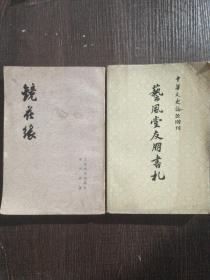 镜花缘
中华文史论丛增刊
藝風堂友朋書札